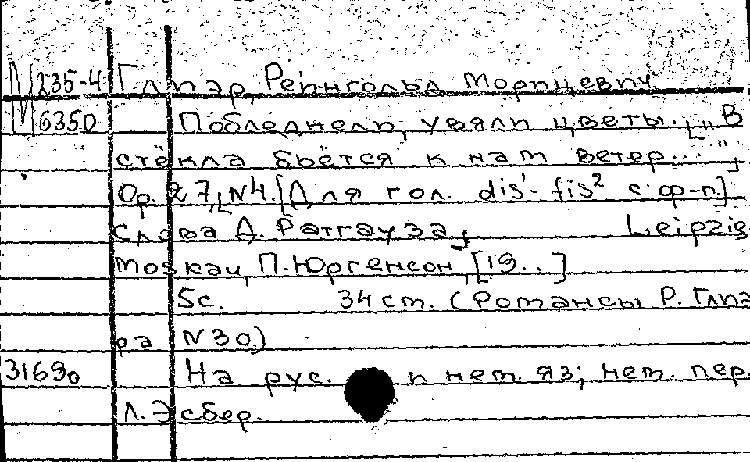 М235-4 Глиэр, Рейнгольд Морицевич
М6350 Побледнели, увяли цветы... „В
стёкла бьётся к нам ветер...",
Ор. 27, N4. [Для гол. dis¹- fis² с ф-п].
Слова Д. Ратгауза, Leipzig
Москау, П. Юргенсон, [19..]
5с. 34 ст. (Романсы Р. Глиэ
ра N30)
31690 На рус. и нем яз; нем. пер.
Л. Эсбер.